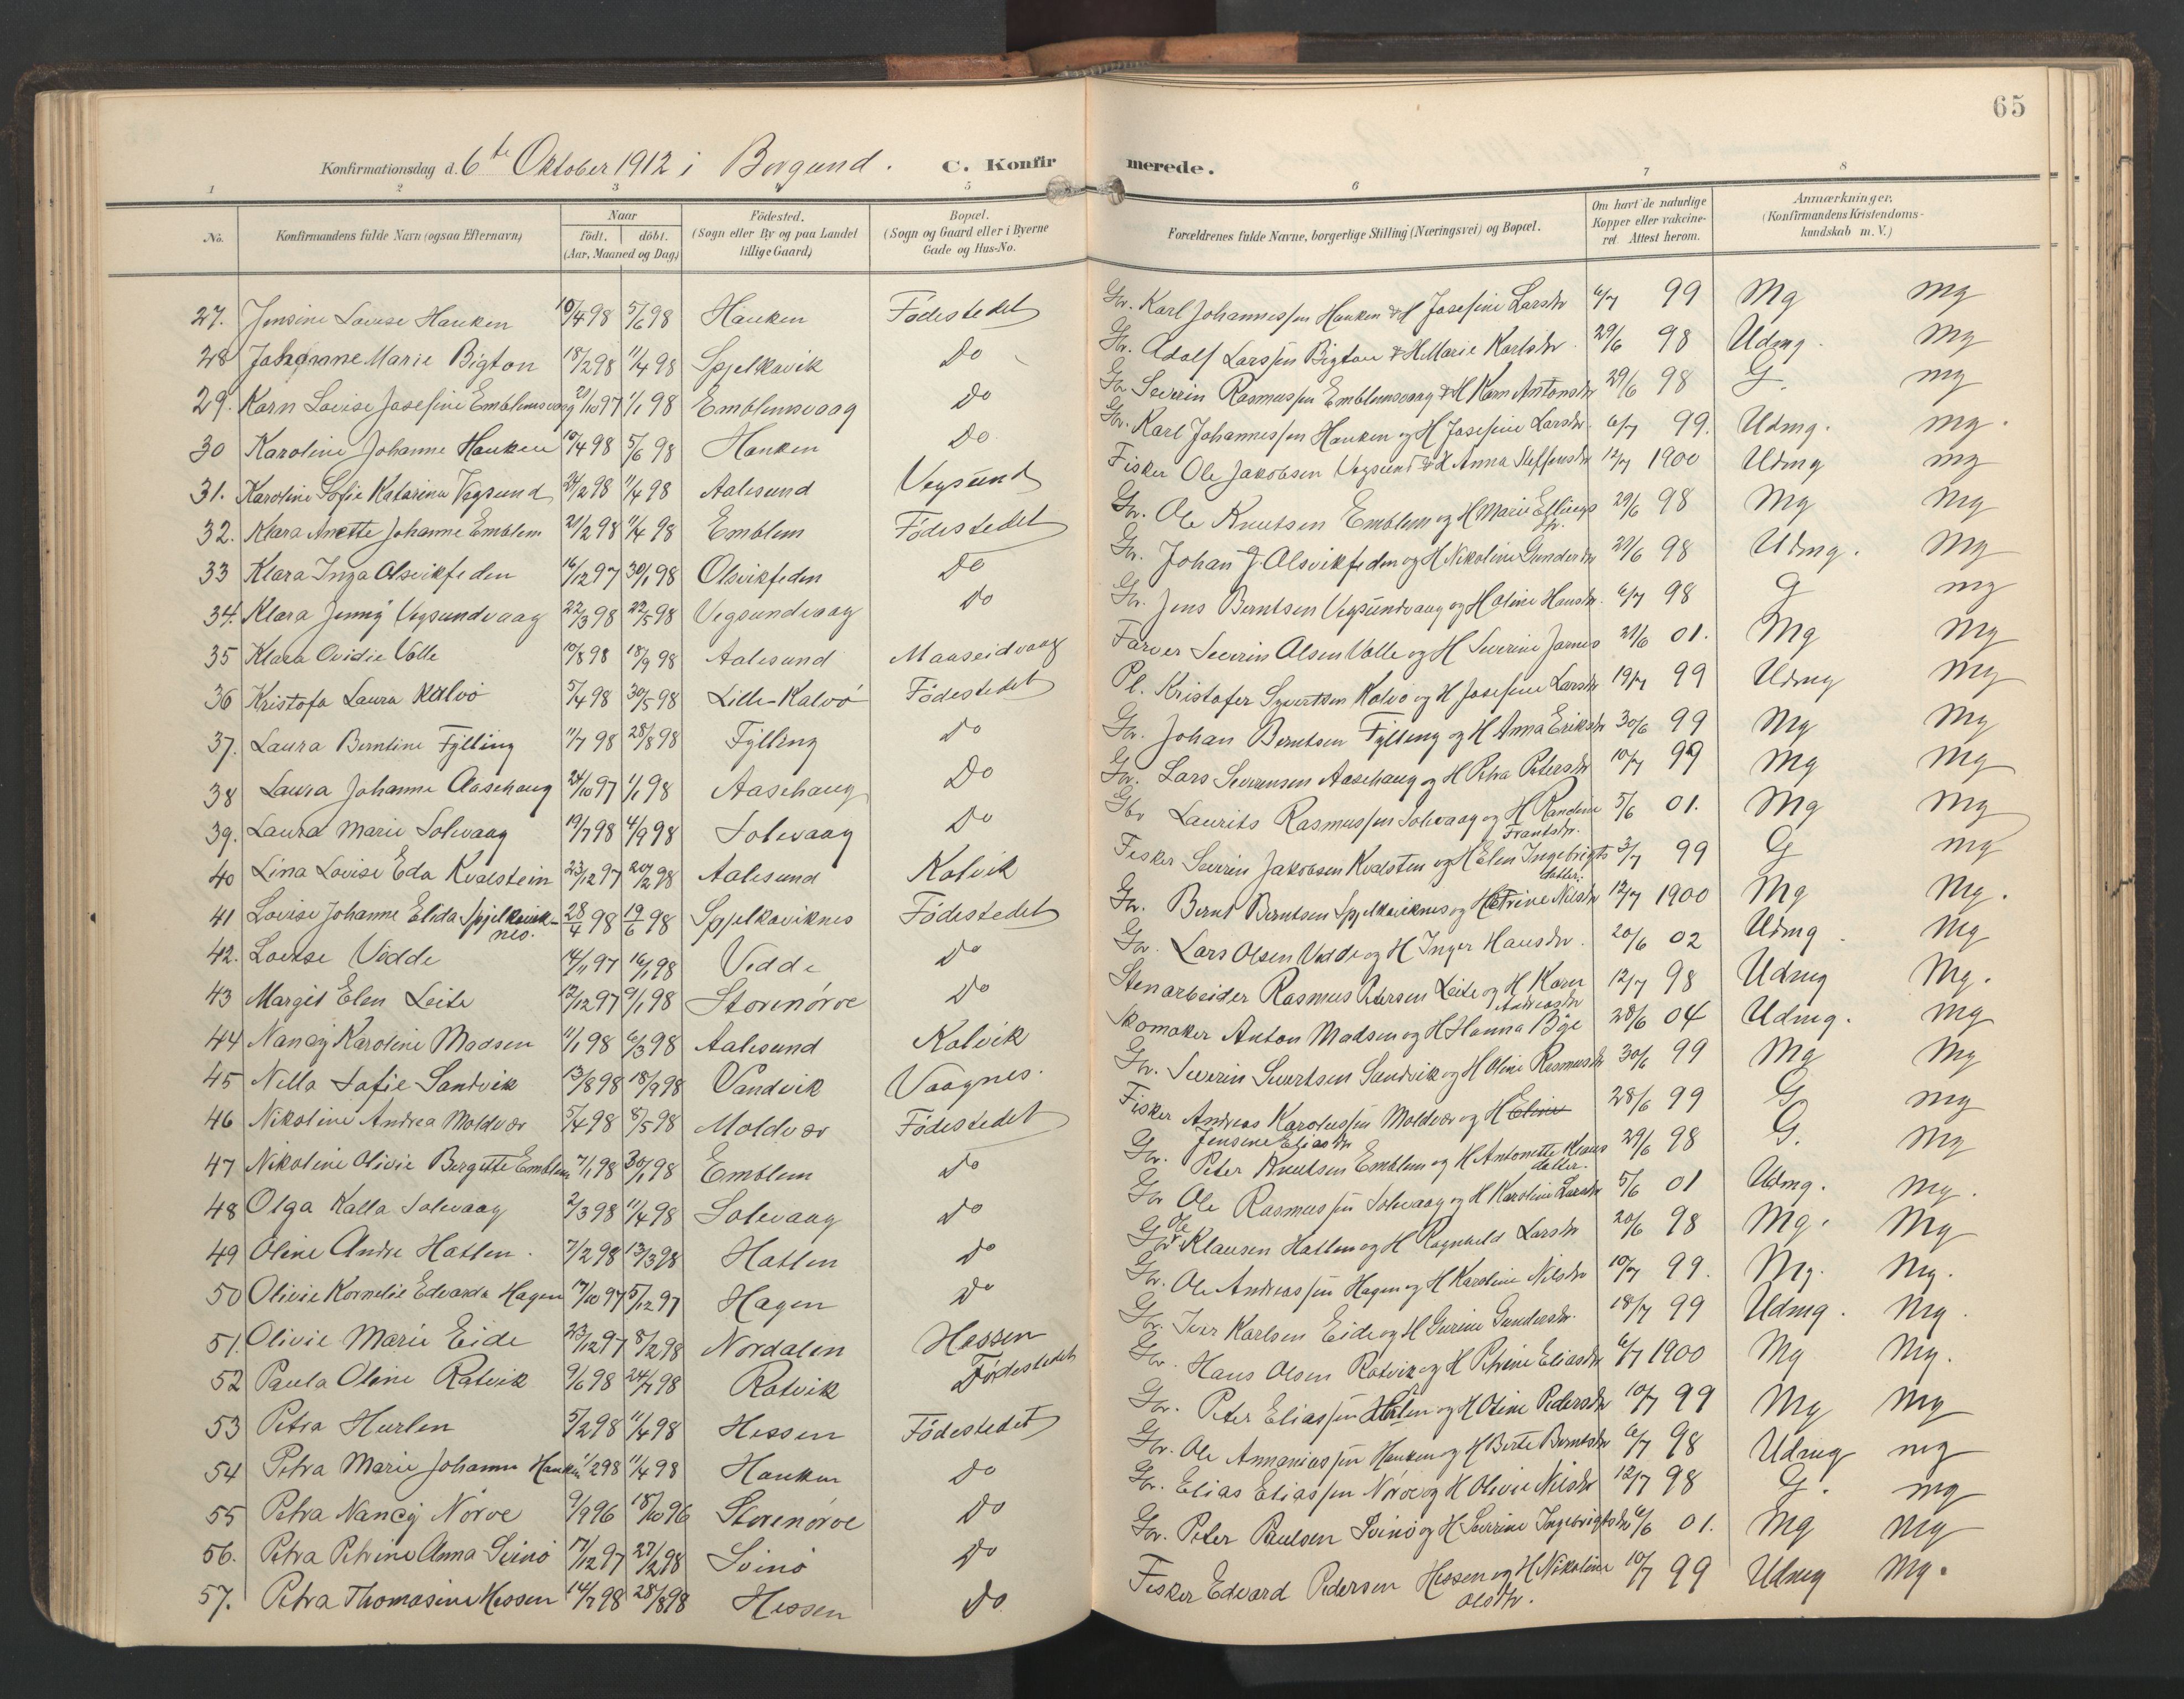 65
Konfirmationsdag d. 6te Oktober 1912 i Borgund. C. Konfirmerede.
1 2 3 4 5 6 7 8
No. Konfirmandens fulde Navn (ogsaa Efternavn) Naar født. døbt. (Aar, Maaned og Dag) Fødested. (Sogn eller By og paa Landet tillige Gaard) Bopæl. (Sogn og Gaard eller i Byerne Gade og Hus-No. Forældrenes fulde Navne, borgerlige Stilling (Næringsvei) og Bopæl. Om havt de naturlige Kopper eller vakcineret. Attest herom. Anmærkninger, (Konfirmandens Kristendomskundskab m. V.)
27. Jensine Lovise Hauken 10/4 98 5/6 98 Hauken Fødestedet Gbr. Karl Johannessen Hauken & H Josefine Larsdr 6/7 99 Mg mg
28 Johanne Marie Bigton 18/2 98 11/4 98 Spjelkavik Do Gbr. Adolf Larssen Bigton & H Marie Karlsdr. 29/6 98 Udmg. mg
29. Karn Lovise Josefine Emblemsvaag 21/10 97 1/1 98 Emblemsvaag Do Gbr Severin Rasmussen Emblemsvaag & H Karn Antonsdr 29/6 98 G. mg
30 Karoline Johanne Hauken 10/4 98 5/6 98 Hauken Do Gbr. Karl Johannessen Hauken og H Josefine Larsdr. 6/7 99. Udmg. mg.
31. Karoline Sofie Katarina Vegsund 24/2 98 11/4 98 Aalesund Vegsund Fisker Ole Jakobsen Vegsund & H Anna Steffensdr 12/7 1900 Udmg mg
32. Klara Anette Johanne Emblem 21/2 98 11/4 98 Emblem Fødestedet Gbr. Ole Knutsen Emblem og H Marie Ellings dr. 29/6 98 Mg mg
33 Klara Inga Olsvikfeden 16/12 97 30/1 98 Olsvikfeden Do Gbr. Johan J. Olsvikfeden og H Nikoline Gundersdr 29/6 98 Udmg. mg
34. Klara Jenny Vegsundvaag 22/3 98 22/5 98 Vegsundvaag Do Gbr. Jens Berntsen Vegsundvaag og H Oline Hansdr. 6/7 98 G mg
35 Klara Ovidie Volle 10/8 98 18/9 98 Aalesund Maaseidvaag Farver Severin Olsen Volle og H Severine 21/6 01. Mg mg
36 Kristofa Laura Kalvø 5/4 98 30/5 98 Lille-Kalvø Fødestedet Pl. Kristofer Syvertsen Kalvø og H Josefine Larsdr 19/7 99 Udmg mg
37. Laura Berntine Fylling 11/7 98 28/8 98 Fylling Do Gbr. Johan Berntsen Fylling og H Anna Eriksdr 30/6 99 Mg mg
38 Laura Johanne Aasehaug 24/10 97 1/1 98 Aasehaug Do Gbr. Lars Severensen Aasehaug og H Petra Petersdr 10/7 99 Mg mg
39. Laura Marie Solevaag 19/7 98 4/9 98 Solevaag Do Gbr Laurits Rasmussen Solevaag og H Randine Frantsdr. 5/6 01. Mg mg
40 Lina Lovise Eda Kvalstein 23/12 97 20/2 98 Aalesund Kalvik Fisker Severin Jakobsen Kvalsten og H Elen Ingebrigts datter. 3/7 99 G mg
41 Lovise Johanne Elida Spjelkaviknes. 28/4 98 19/6 98 Spjelkaviknes Fødestedet Gbr. Bernt Berntsen Spjelkaviknes og H Trine Nilsdr 12/7 1900 Mg Mg.
42. Lovise Vedde 14/11 97 16/1 98 Vedde Do Gbr. Lars Olsen Vedde og H Inger Hansdr. 20/6 02 Udmg. Mg
43 Margit Elen Leite 12/12 97 9/1 98 Storenørve Do Stenarbeider Rasmus Petersen Leite og H Karn Andreasdr 12/7 98 Udmg Mg.
44 Nancy Karoline Madsen 11/1 98 6/3 98 Aalesund Kalvik Skomaker Anton Madsen og H Hanna Bøe 28/6 04 Udmg. mg
45 Nella Sofie Sandvik 13/8 98 18/9 98 Vandvik Vaagnes. Gbr. Severin Sivertsen Sandvik og H Oline Rasmusdr 30/6 99 Mg Mg
46 Nikoline Andrea Moldvær 5/4 98 8/5 98 Moldvær Fødestedet Fisker Andreas Karolussen Moldvær og H Eline Jensine Eliasdr 28/6 99 G mg
47 Nikoline Olivie Bergitte Emblem 7/1 98 30/1 98 Emblem Do Gbr. Peter Knutsen Emblem og H Antonette Klaus datter. 29/6 98 G. mg
48 Olga Kalla Solevaag 2/3 98 11/4 98 Solevaag Do Gbr Ole Rasmussen Solevaag og H Karoline Larsdr 5/6 01 Udmg. mg.
49 Oline Andre Hatlen. 7/2 98 13/3 98 Hatlen Do Gbr Ole Klausen Hatlen og H Ragnhild Larsdr 20/6 98 Mg. Mg
50 Olivie Kornelie Edvarda Hagen 17/10 97 5/12 97 Hagen Do Gbr. Ole Andreassen Hagen og H Karoline Nilsdr 10/7 99. Mg. Mg.
51. Olivie Marie Eide 23/12 97 8/2 98 Nordalen Hessen Gbr. Iver Karlsen Eide og H Gurine Gundersdr. 18/7 99 Udmg. Mg.
52 Paula Oline Ratvik 9/6 98 24/7 98 Ratvik Fødestedet Gbr. Hans Olsen Ratvik og H Petrine Eliasdr 6/7 1900 Mg Mg.
53 Petra Hurlen 5/2 98 11/4 98 Hessen Fødestedet Gbr. Peter Eliassen og H Oline Pedersdr 10/7 99 Mg Mg
54 Petra Marie Johanne Hauken 1/2 98 11/4 98 Hauken Do Gbr. Ole Annaniassen Hauken og H Berte Berntsdr 6/7 98 Udmg mg
55 Petra Nancy Nørve 9/9 96 18/10 96 Storenørve Do Gbr. Elias Eliassen Nørve og H Olivie Nilsdr 12/7 98 G. mg
56. Petra Petrine Anna Svinø 17/12 97 27/2 98 Svinø Do Gbr. Peter Paulsen Svinø og H Severine Ingebrigtsdr 6/6 01. Mg Mg
57. Petra Thomasine Hessen 14/7 98 28/8 98 Hessen Do Fisker Edvard Pedersen Hessen og H Nikoline Olsdtr. 10/7 99 Udmg Mg.